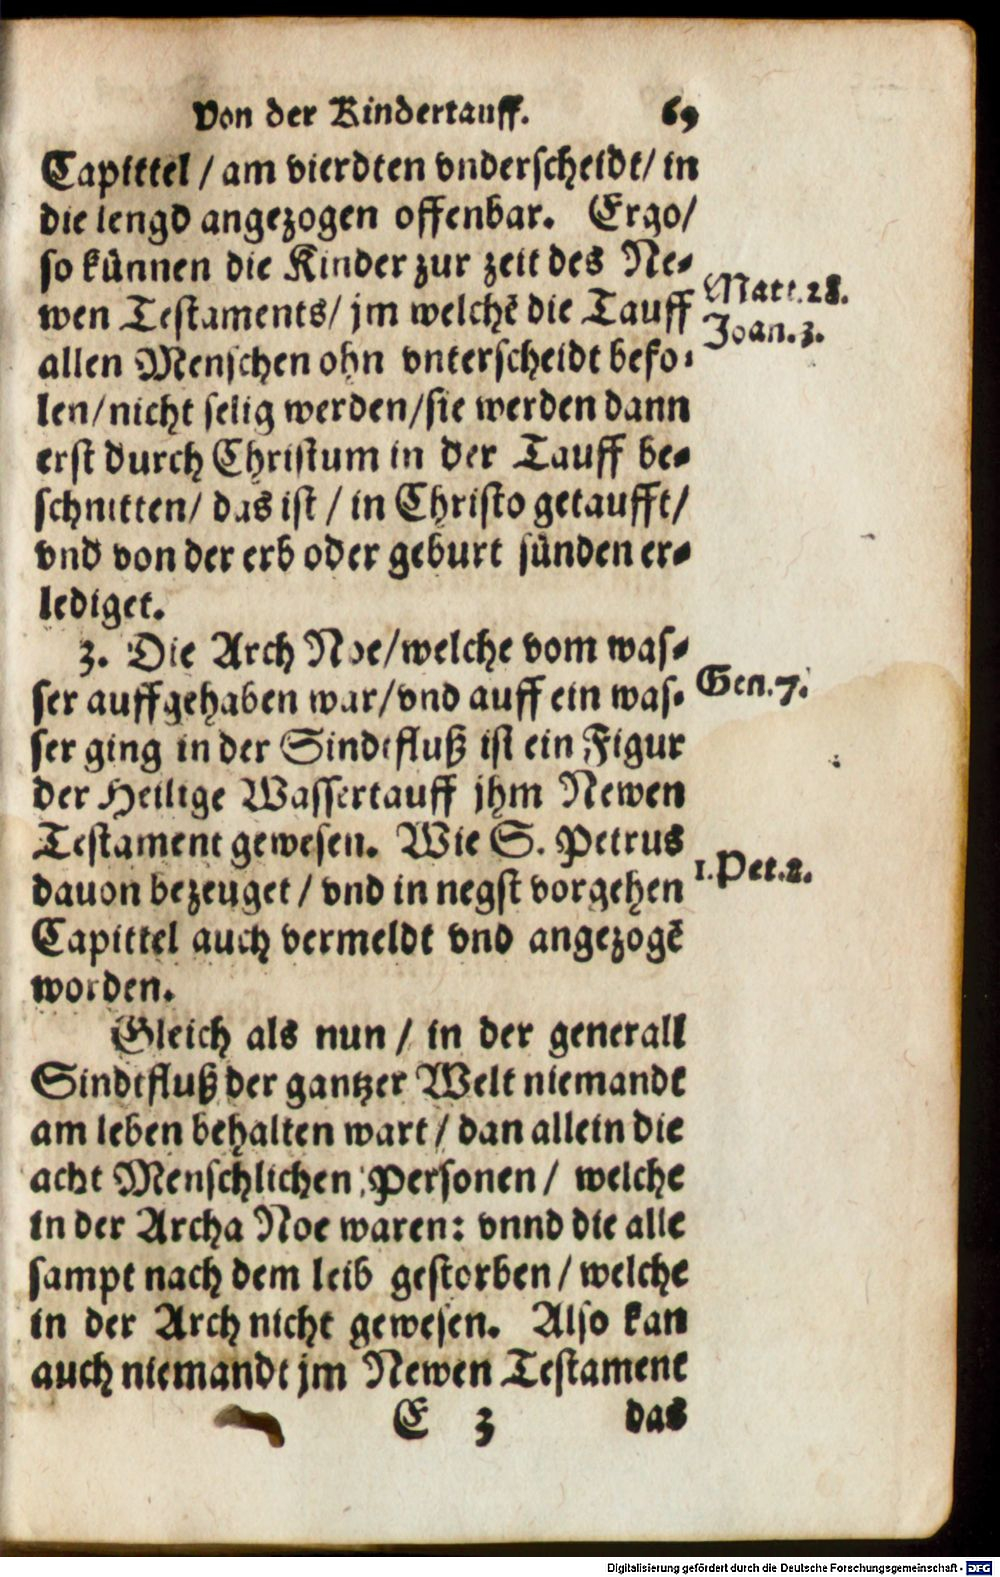 Von der Kindertauff. 69
Capittel / am vierdten vnderscheidt / in
die lengd angezogen offenbar. Ergo /
so künnen die Kinder zur zeit des Ne-
wen Testaments / jm welchē die Tauff
Matt. 28.
allen Menschen ohn vnterscheidt befo-
Joan. 3.
len / nicht selig werden / sie werden dann
erst durch Christum in der Tauff be-
schnitten / das ist / in Christo getaufft /
vnd von der erb oder geburt sünden er-
lediget.
3. Die Arch Noe / welche vom was-
ser auffgehaben war / vnd auff ein was-
Gen. 7.
ser ging in der Sindtfluß ist ein Figur
der Heilige Wassertauff jhm Newen
Testament gewesen. Wie S. Petrus
dauon bezeuget / vnd in negst vorgehen
1. Pet. 2.
Capittel auch vermeldt vnd angezogē
worden.
Gleich als nun / in der generall
Sindtfluß der gantzer Welt niemandt
am leben behalten wart / dan allein die
acht Menschlichen Personen / welche
in der Archa Noe waren: vnnd die alle
sampt nach dem leib gestorben / welche
in der Arch nicht gewesen. Also kan
auch niemandt jm Newen Testament
E 3 das
Digitalisierung gefördert durch die Deutsche Forschungsgemeinschaft - DFG